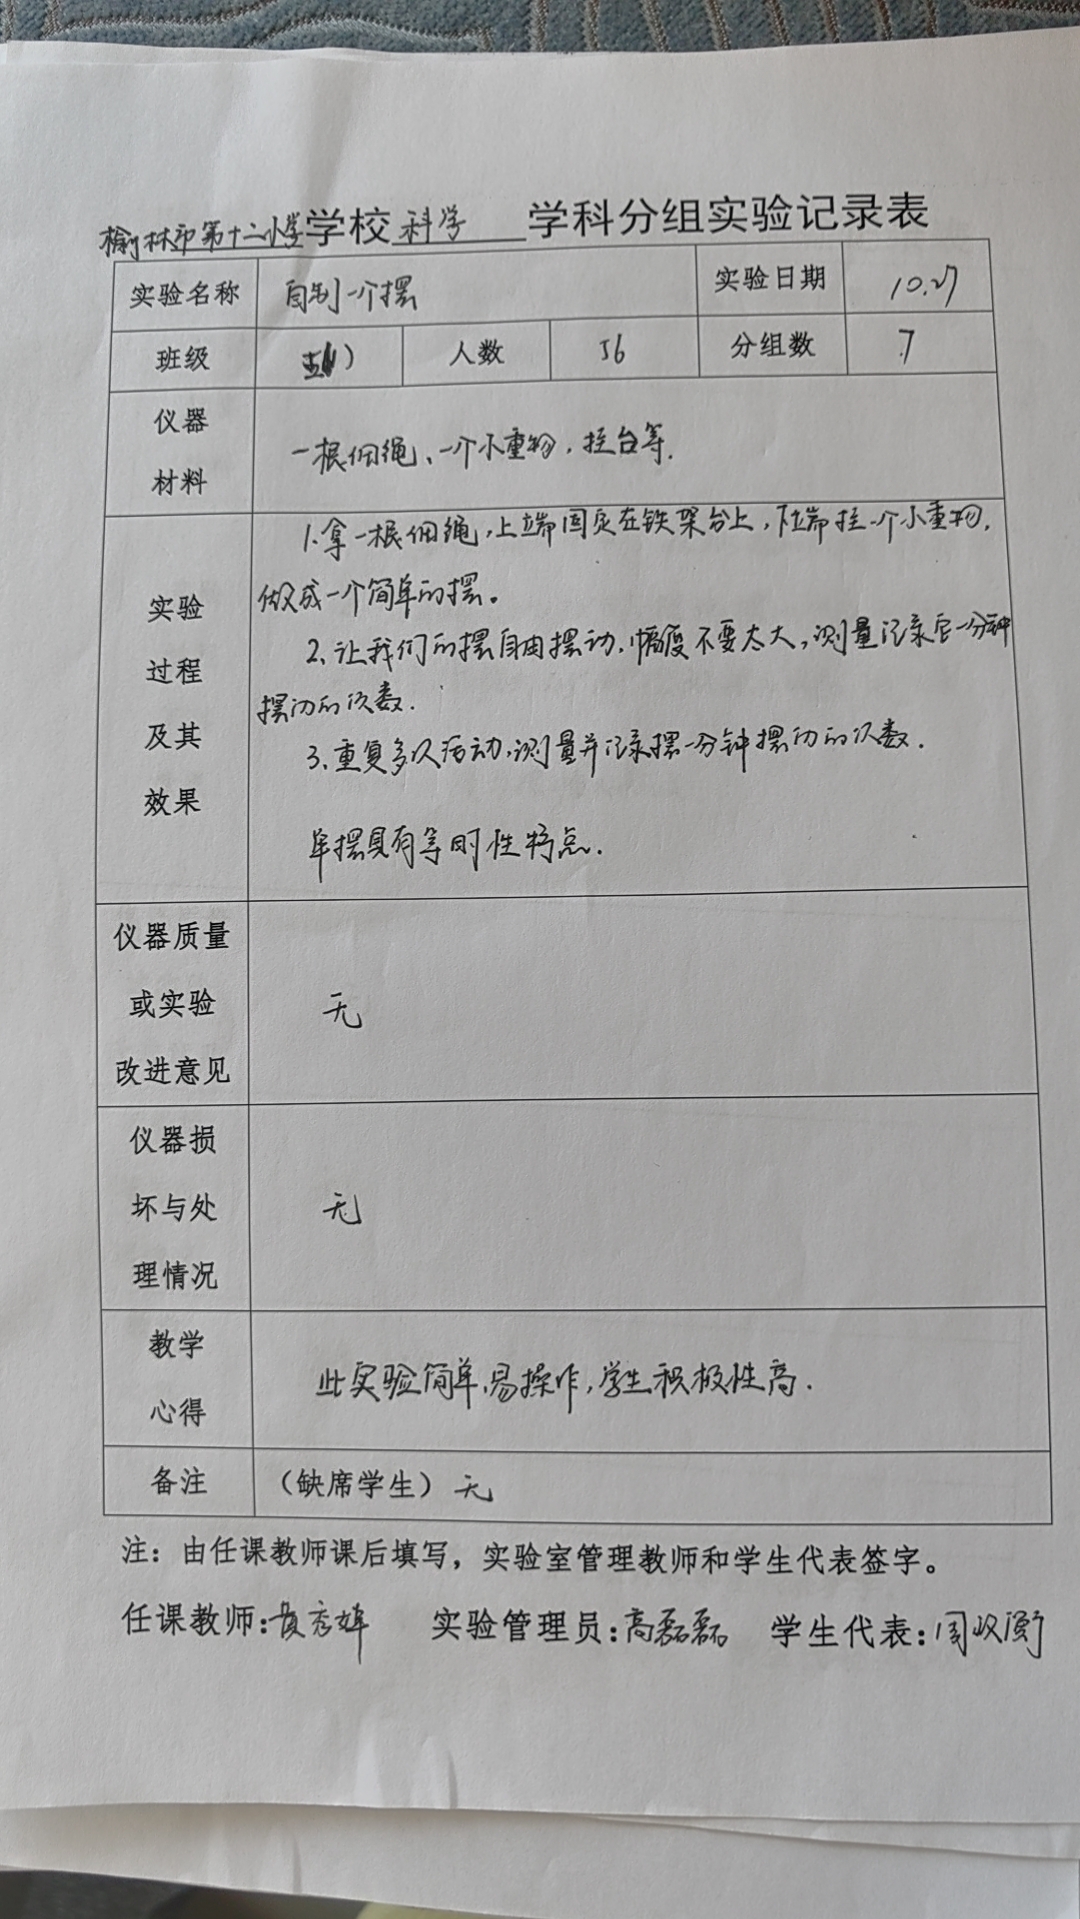 榆林市第十二小学学校 科学 学科分组实验记录表
实验名称 自制一个摆 实验日期 10.27
班级 五(1) 人数 56 分组数 7
仪器
材料
一根细绳、一个小重物,挂台等.
实验
过程
及其
效果
1.拿一根细绳,上端固定在铁架台上,下端挂一个小重物,
做成一个简单的摆。
2、让我们的摆自由摆动,幅度不要太大,测量记录它一分钟
摆动的次数.
3、重复多次活动,测量并记录摆一分钟摆动的次数.
单摆具有等时性特点.
仪器质量
或实验
改进意见
无
仪器损
坏与处
理情况
无
教学
心得
此实验简单,易操作,学生积极性高.
备注 (缺席学生)无
注:由任课教师课后填写,实验室管理教师和学生代表签字。
任课教师: 实验管理员:高磊磊 学生代表: